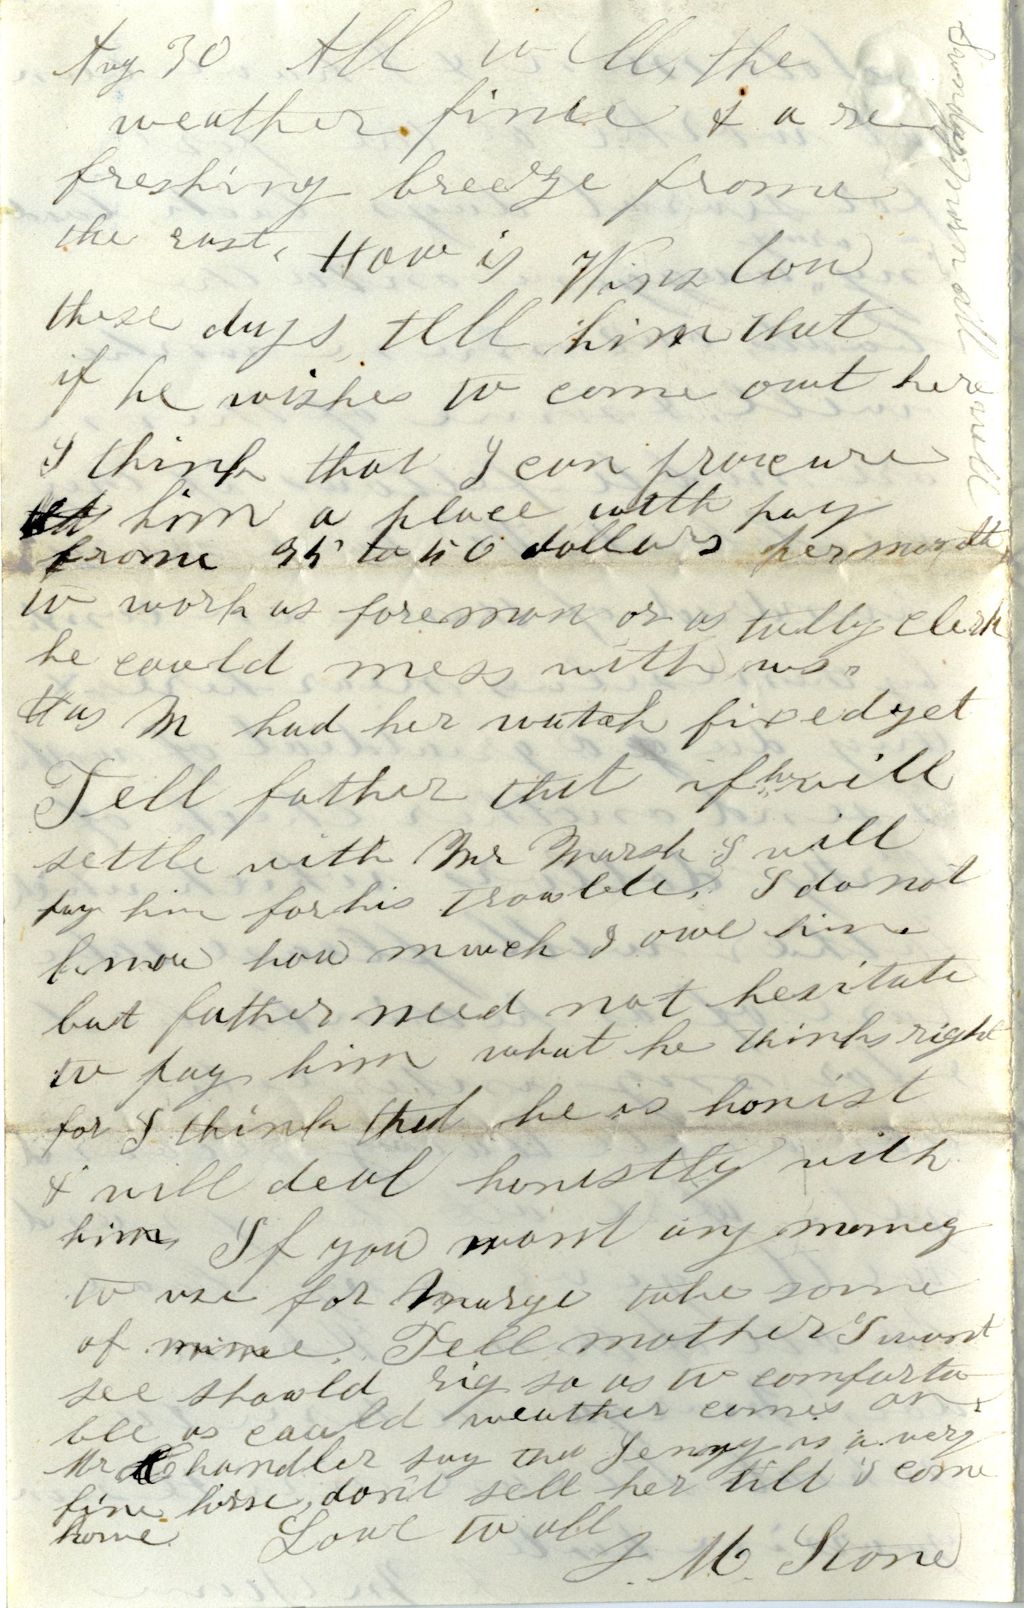 Aug 30 All well, the
weather fine & a re
freshing breeze frome
the east. How is Winslow
these days, tell him that
if he wishes to come out here
I think that I can procure
him a place with pay
frome 35 to 50 dollars per month,
to work as foreman or as tally clerk
he could mess with us.
Has M had her watch fixed yet
Tell father that if he will
settle with Mr Marsh I will
pay him for his trouble. I do not
know how much I owe him
but father need not hesitate
to pay him what he thinks right
for I think that he is honist
& will deal honistly with
him, If you want any money
to use for Marge take some
of mine. Tell mother I want
see should rig so as to comforta
ble as cauld weather comes on.
Mr Chandler say tha Jenny is a very
fine horse, don't sell her till I come
home. Love to all
J. M. Stone
Saunday all well